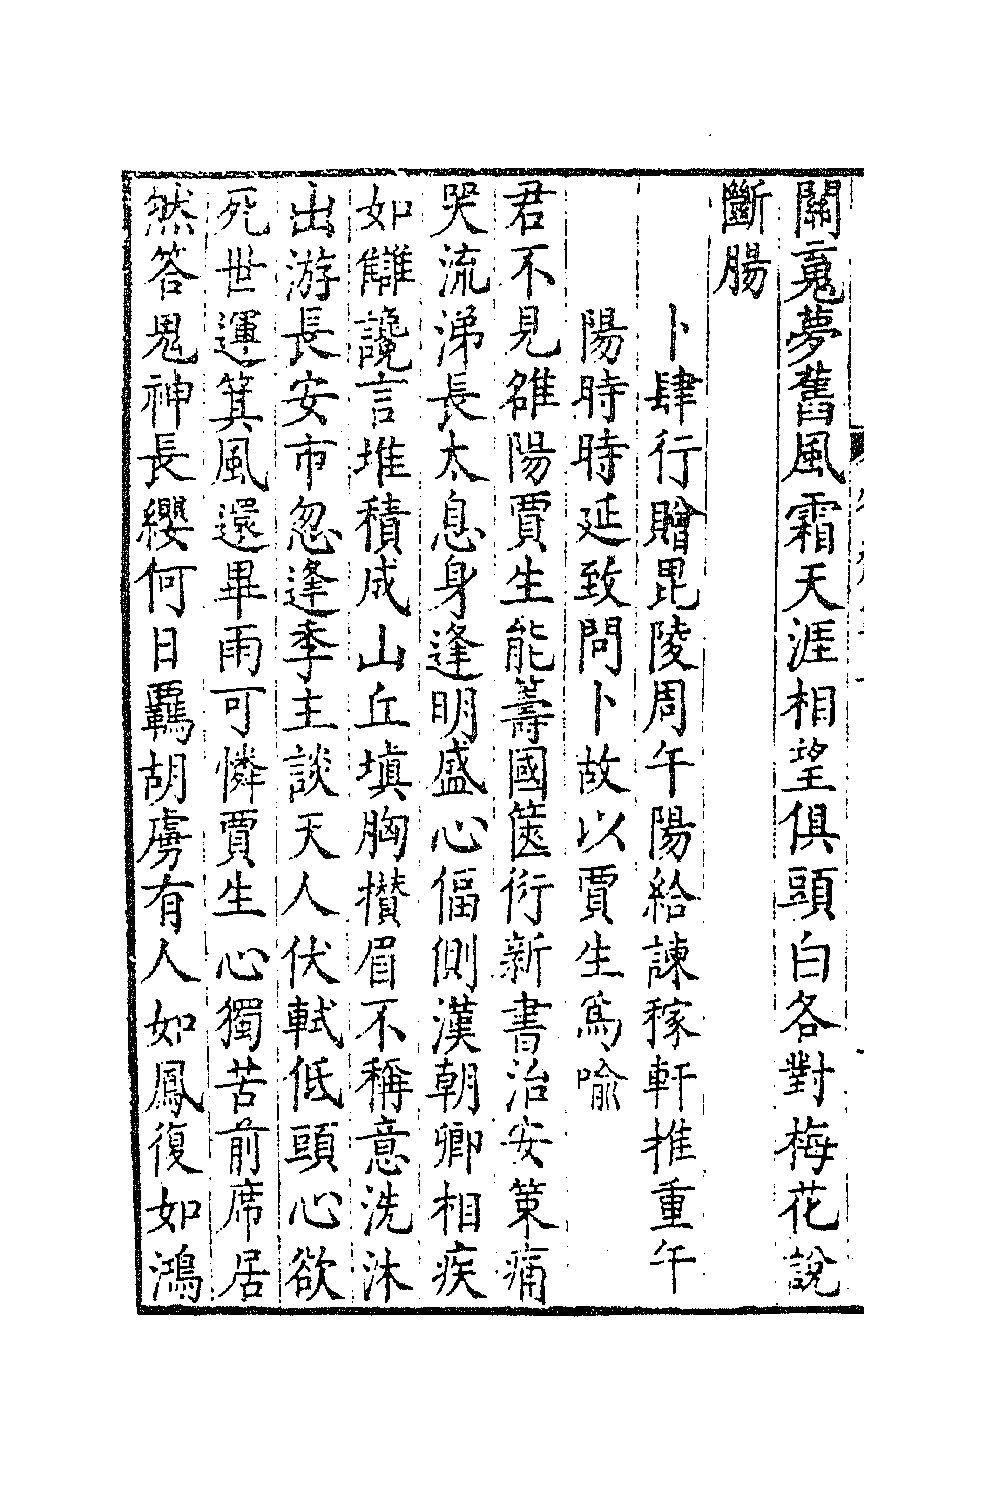 關䰟夢舊風霜天涯相望俱頭白各對梅花說
斷腸
卜肆行贈毘陵周午陽給諫稼軒推重午
陽時時延致問卜故以賈生爲喻
君不見雒陽賈生能籌國篋衍新書治安策痛
哭流涕長太息身逢明盛心偪側漢朝卿相疾
如讎讒言堆積成山丘塡胸攅眉不稱意洗沐
出游長安市忽逢季主談天人伏軾低頭心欲
死世運箕風還畢雨可憐賈生心獨苦前席居
然答鬼神長纓何日羈胡虜有人如鳳復如鴻